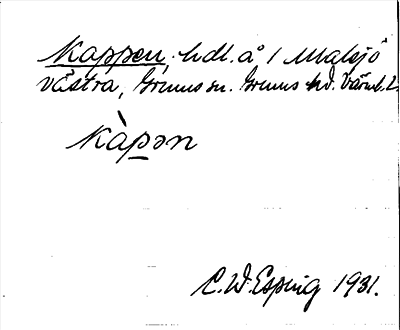 Kappen, hdl. å 1 Malsjö
västra, Grums sn. Grums hd. Värml. L.
Kàpən
C. W. Esping 1931.